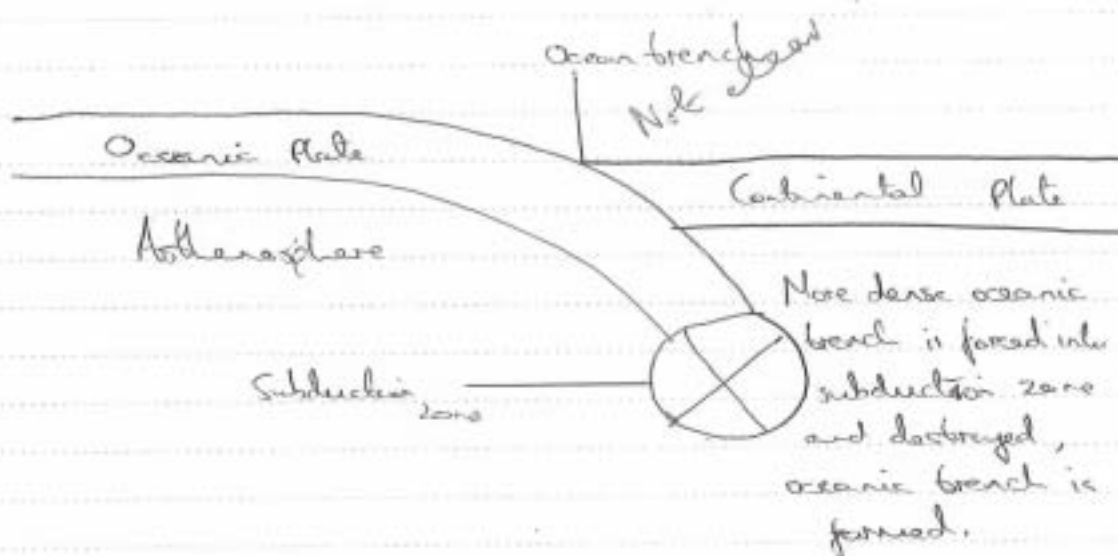 Ocean trench
Oceanic Plate
Continental Plate
Asthenosphere
More dense oceanic
trench is forced into
subduction zone
and destroyed,
oceanic trench is
formed.
Subduction
zone